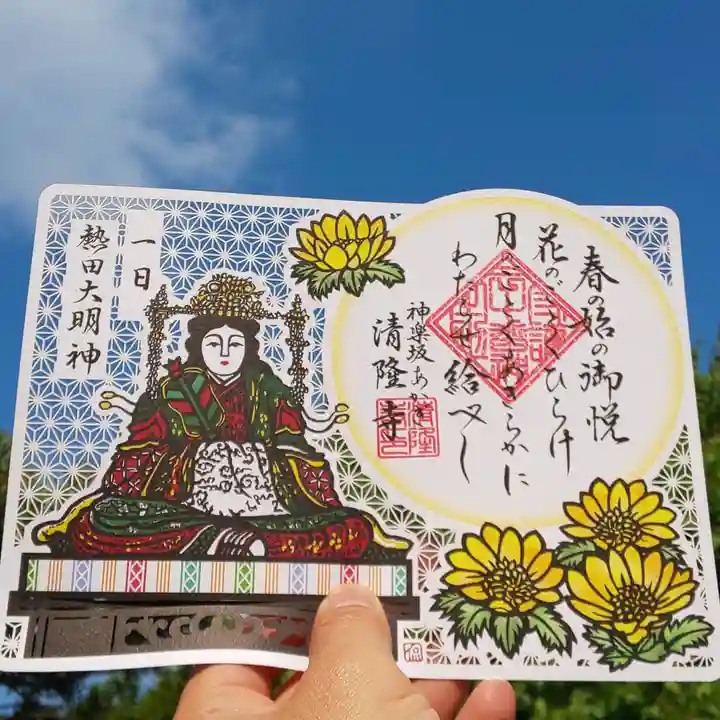 春の始の御悦
花のごとくひらけ
月のごとくあきらかに
わたらせ給ふべし
神楽坂あかぎ
清隆寺
一日
熱田大明神